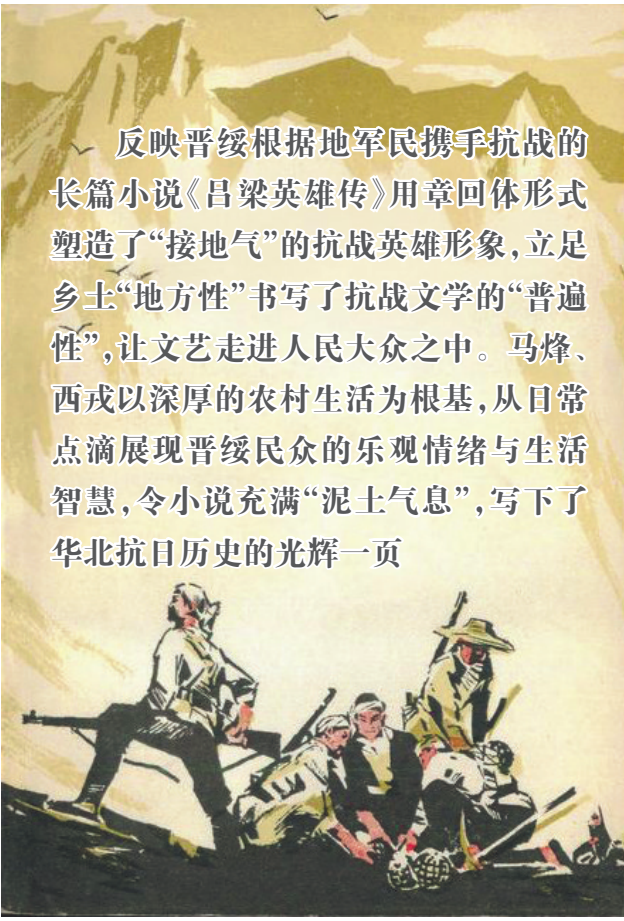 反映晋绥根据地军民携手抗战的
长篇小说《吕梁英雄传》用章回体形式
塑造了“接地气”的抗战英雄形象,立足
乡土“地方性”书写了抗战文学的“普遍
性”,让文艺走进人民大众之中。马烽、
西戎以深厚的农村生活为根基,从日常
点滴展现晋绥民众的乐观情绪与生活
智慧,令小说充满“泥土气息”,写下了
华北抗日历史的光辉一页